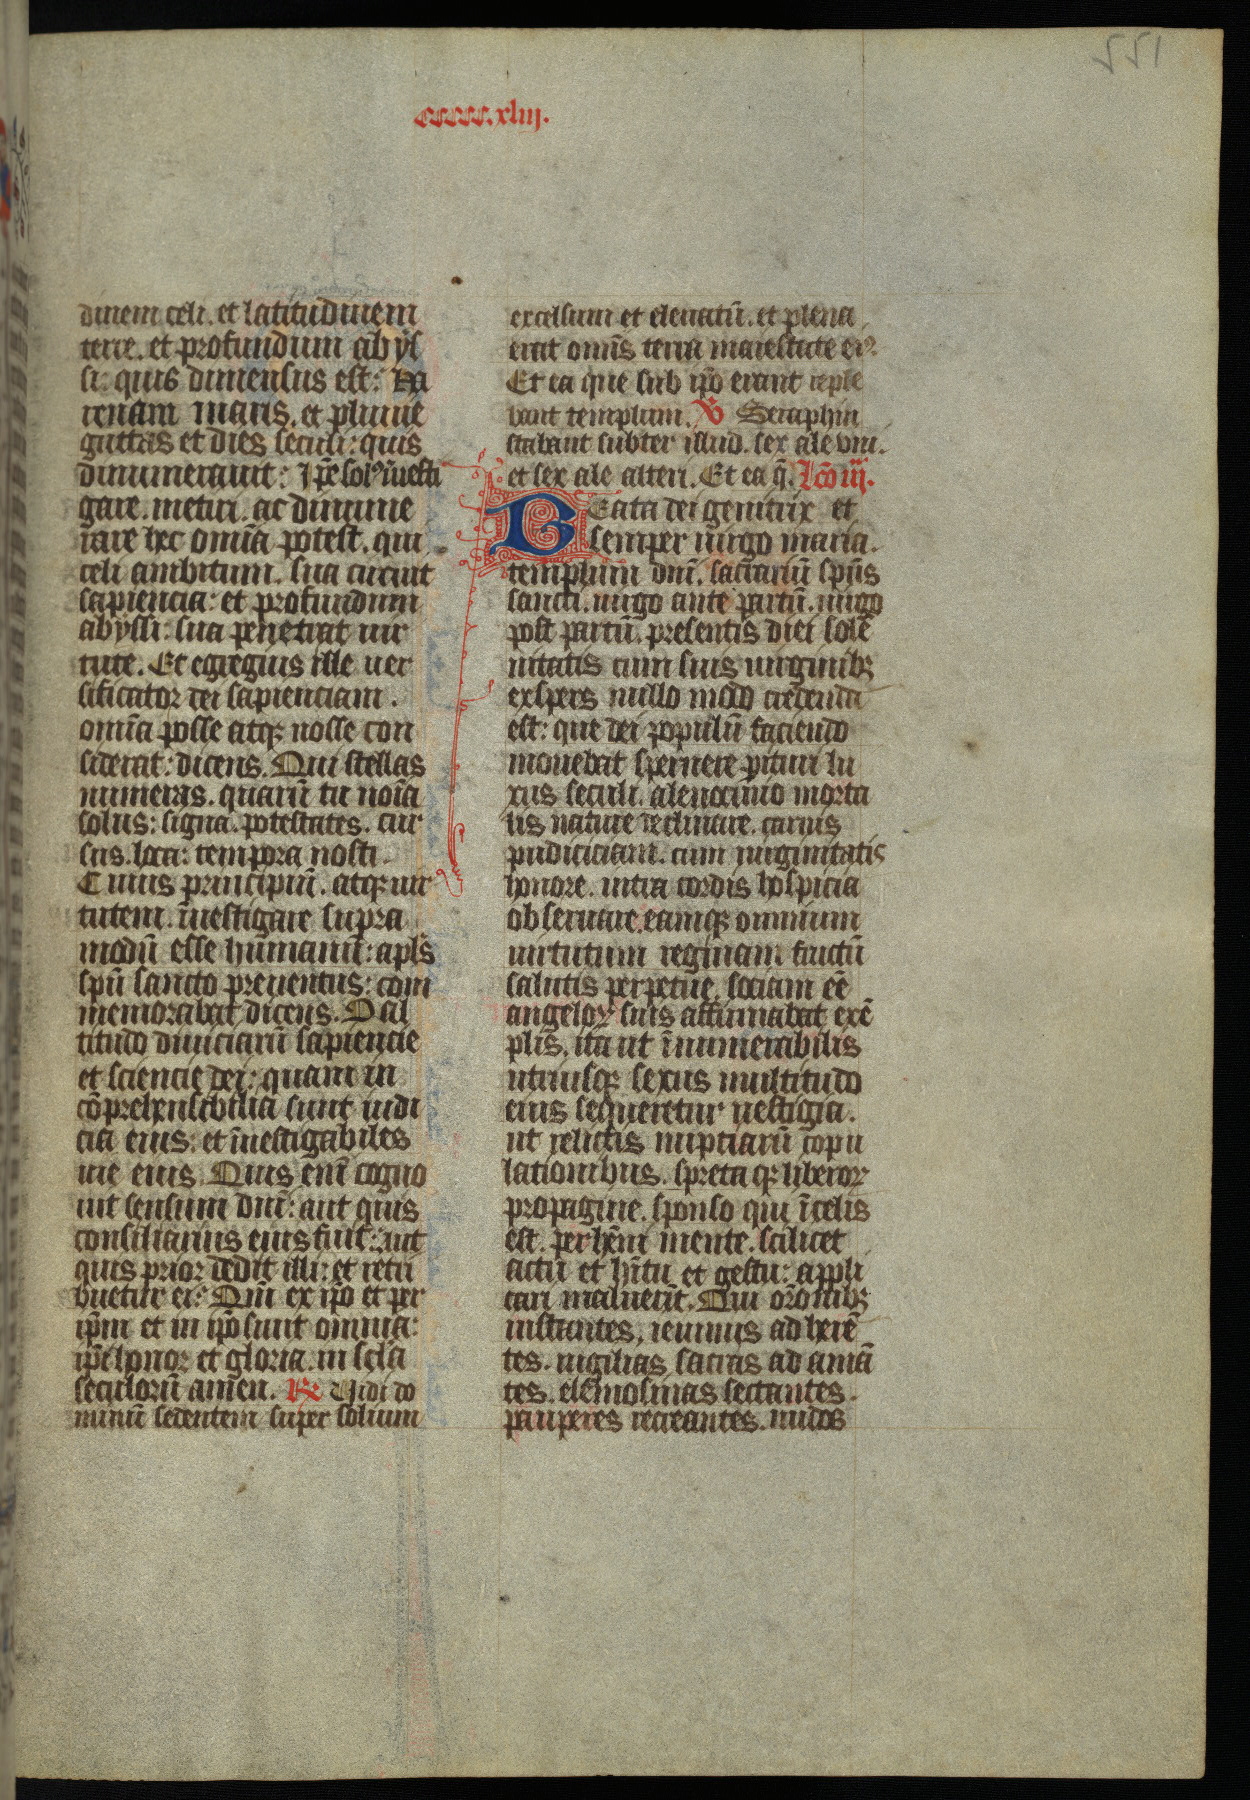 551
ccccc.xliij.
dinem celi. et latitudinem
terre. et profundum abys
si: quis dimensus est: Ha
renam maris. et pluuie
guttas et dies seculi: quis
dinumerauit: Ip̄e solꝰ īuesti
gare. metiri. ac dinume
rare hec om̄ia potest. qui
celi ambitum. sua circuit
sapiencia: et profundum
abyssi: sua penetrat uir
tute. Et egregius ille uer
sificator dei sapienciam.
om̄ia posse atqꝫ nosse con
siderat: dicens. Qui stellas
numeras. quarū tu noīa
solus: signa. potestates. cur
sus. loca: tempora nosti.
Cuius principiū. atqꝫ uir
tutem. īuestigare supra
modū esse humanū: apl̄s
sp̄u sancto preuentus: com
memorabat dicens. O al
titudo diuiciarū sapiencie
et sciencie dei: quam in
cōprehensibilia sunt iudi
cia eius: et īuestigabiles
uie eius. Quis enī cogno
uit sensum dn̄i: aut quis
consiliarius eius fuit: aut
quis prior dedit illi: et retri
buetur ei: Qm̄ ex ip̄o et per
ip̄m et in ip̄o sunt omnia:
ip̄i honor et gloria. in scl̄a
seculorū amen. ℟ Vidi do
minū sedentem super solium
excelsum et eleuatū. et plena
erat omīs terra maiestate eiꝰ.
Et ea que sub ip̄o erant reple
bant templum. ℣ Seraphin
stabant subter illud. sex ale vni.
et sex ale alteri. Et ea q̄. Lc̄o iij.
Beata dei genitrix et
semper uirgo maria.
templum dn̄i. sacrariū sp̄us
sancti. uirgo ante partū. uirgo
post partū. presentis diei solē
nitatis cum suis uirginibꝫ
expers nullo modo credenda
est: que dei populū faciendo
mouebat spernere pituri lu
xus seculi. alenocinio morta
lis nature declinare. carnis
pudiciciam. cum uirginitatis
honore. intra cordis hospicia
obseruare. eamqꝫ omnium
uirtutum reginam fructū
salutis perpetue. sociam eē
angeloꝝ suis affirmabat exē
plis. ita ut īnumerabilis
utriusqꝫ sexus multitudo
eius sequeretur uestigia.
ut relictis nuptiarū copu
lationibus. spreta qꝫ liberoꝝ
propagine. sponso qui ī celis
est. perhēni mente. scilicet
actu et hītu et gestu: appli
cari maluerit. Qui orōnibꝫ
instantes. ieiuniis adherē
tes. uigilias sacras ad amā
tes. elemosinas sectantes.
pauperes recreantes. nudos